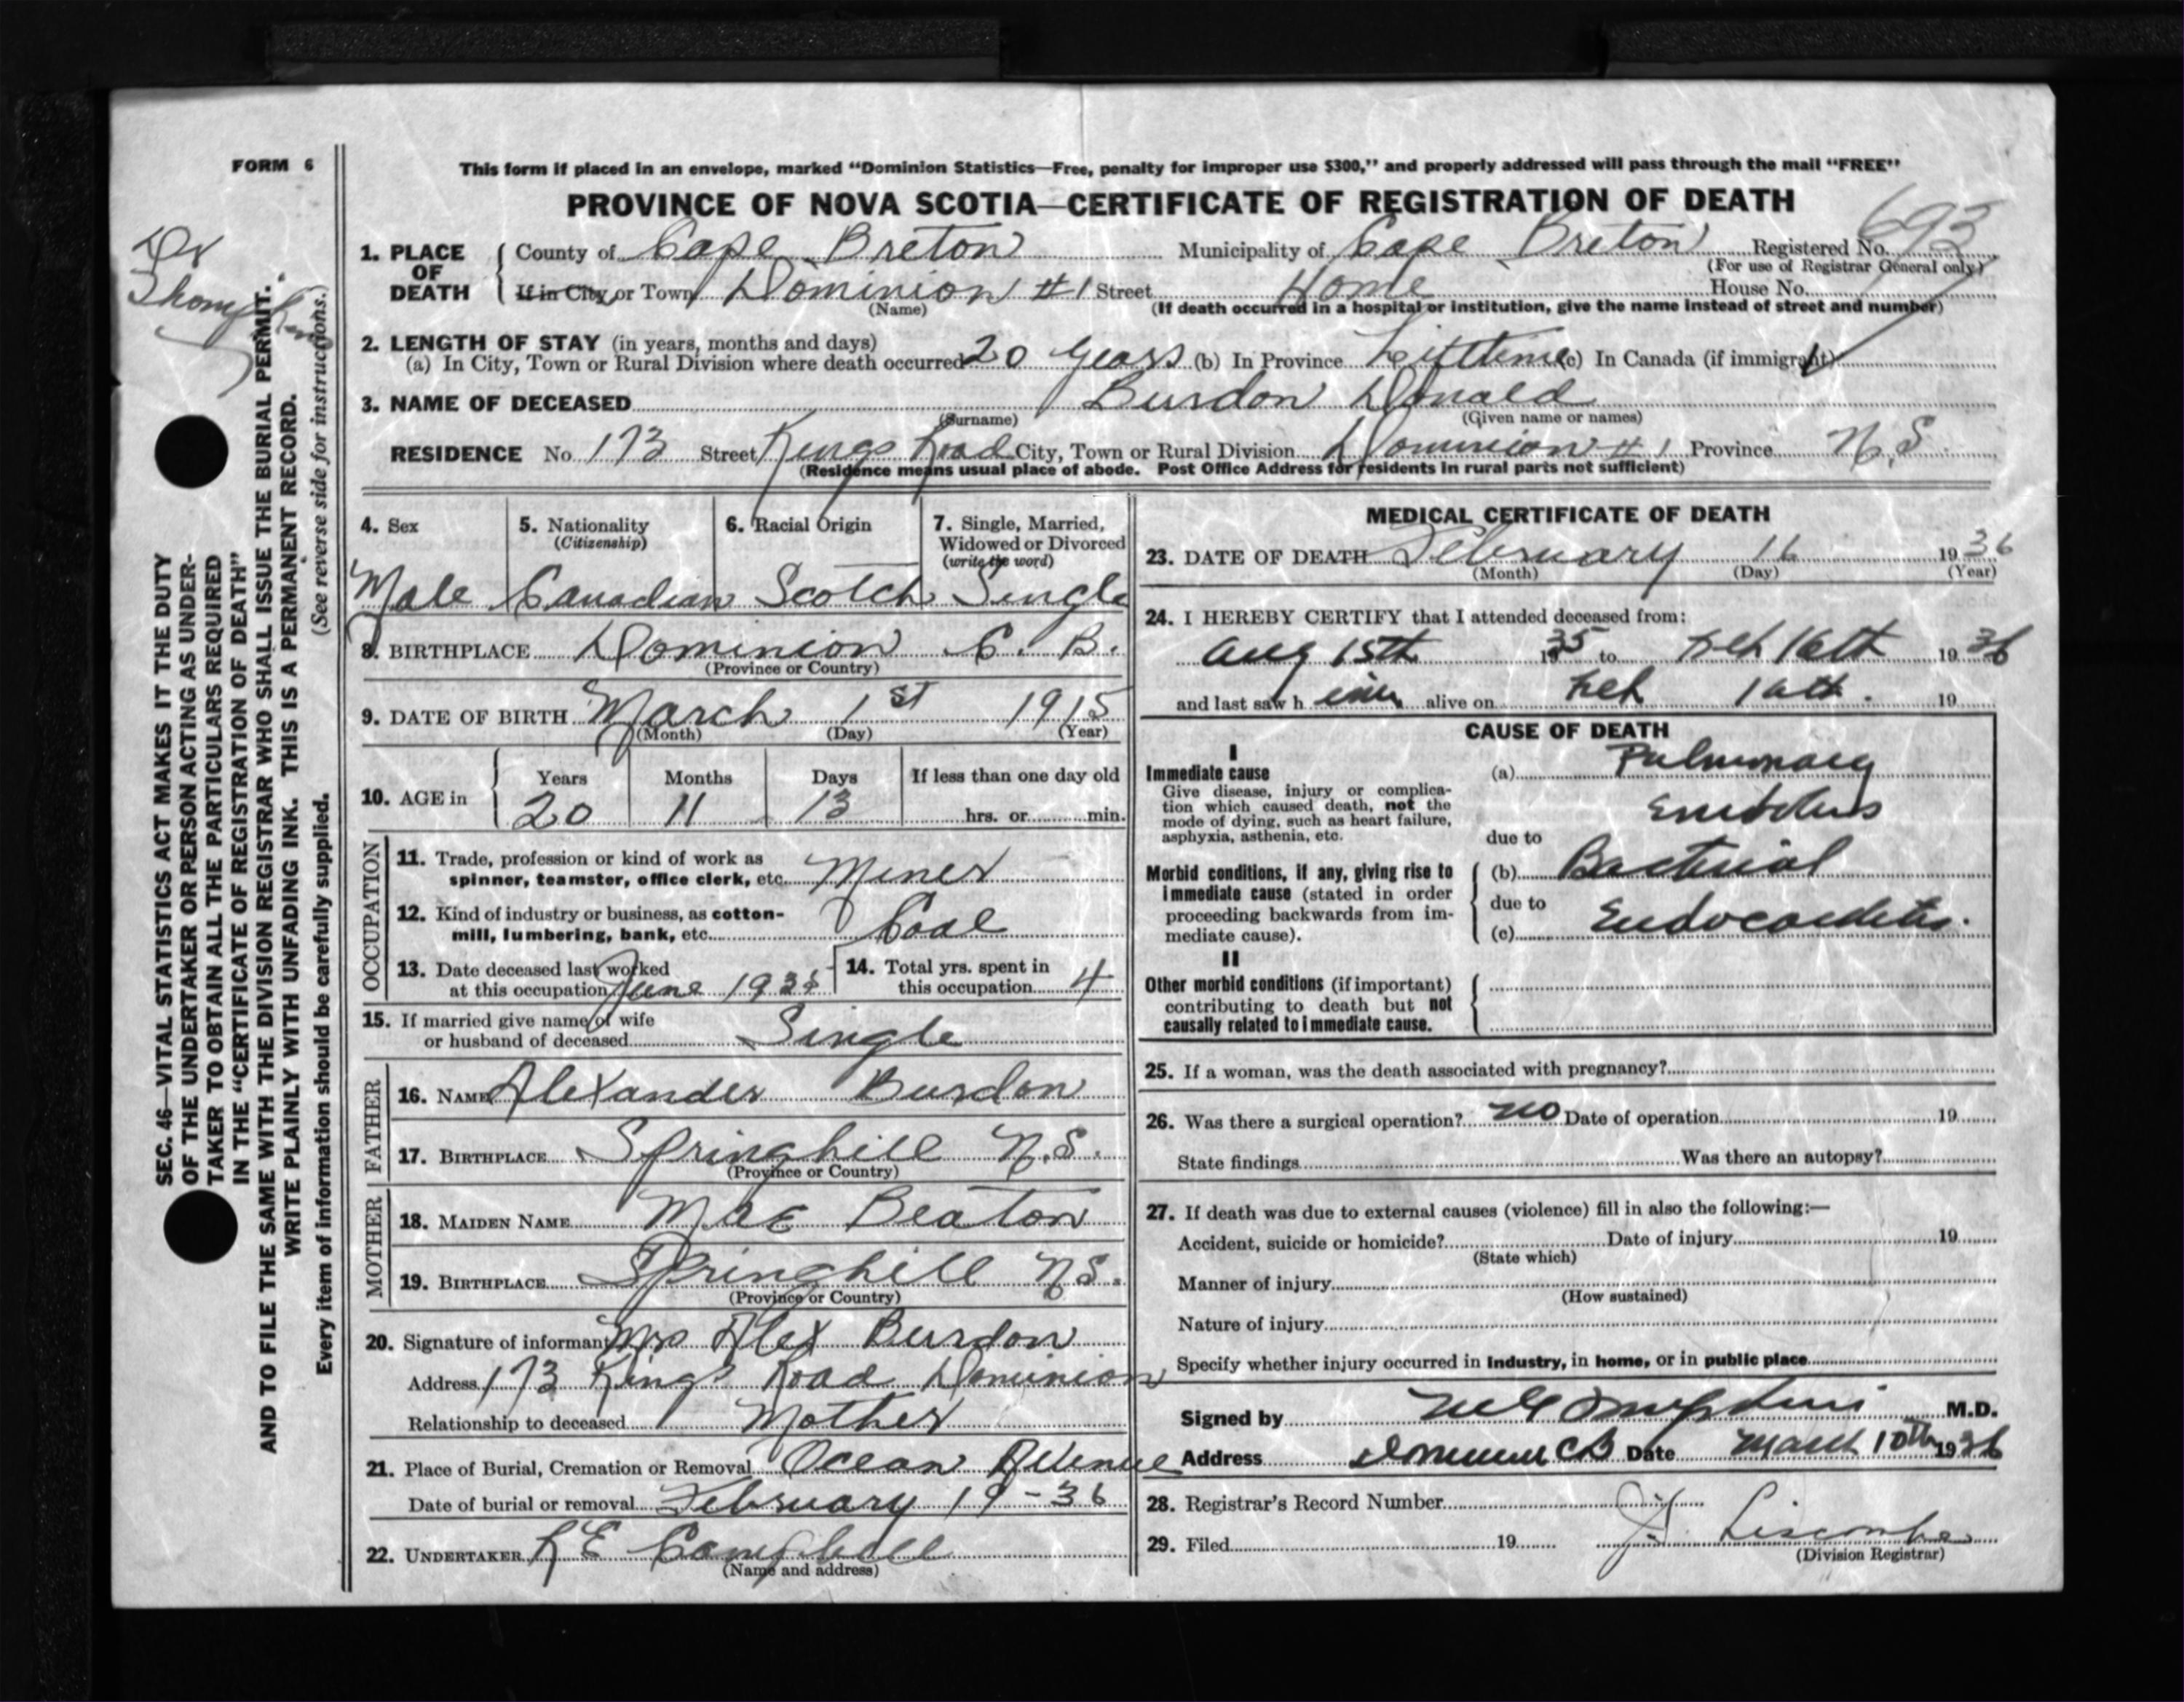 FORM 6
This form if placed in an envelope, marked "Dominion Statistics—Free, penalty for improper use $300," and properly addressed will pass through the mail "FREE"
PROVINCE OF NOVA SCOTIA—CERTIFICATE OF REGISTRATION OF DEATH
693
Dr
1. PLACE OF DEATH
County of Cape Breton Municipality of Cape Breton Registered No.
(For use of Registrar General only)
If in City or Town Dominion #1 Street Home House No.
(Name) (If death occurred in a hospital or institution, give the name instead of street and number)
2. LENGTH OF STAY (in years, months and days)
(a) In City, Town or Rural Division where death occurred 20 years (b) In Province Lifetime (c) In Canada (if immigrant)
3. NAME OF DECEASED Burdon Donald
(Surname) (Given name or names)
RESIDENCE No. 173 Street Kings Road City, Town or Rural Division Dominion #1 Province N.S.
(Residence means usual place of abode. Post Office Address for residents in rural parts not sufficient)
4. Sex 5. Nationality 6. Racial Origin 7. Single, Married,
(Citizenship) Widowed or Divorced
(write the word)
Male Canadian Scotch Single
8. BIRTHPLACE Dominion C. B.
(Province or Country)
9. DATE OF BIRTH March 1st 1915
(Month) (Day) (Year)
10. AGE in Years Months Days If less than one day old
20 11 13 hrs. or min.
OCCUPATION
11. Trade, profession or kind of work as
spinner, teamster, office clerk, etc. Miner
12. Kind of industry or business, as cotton-
mill, lumbering, bank, etc. Coal
13. Date deceased last worked
at this occupation June 1935
14. Total yrs. spent in
this occupation 4
15. If married give name of wife
or husband of deceased Single
FATHER
16. NAME Alexander Burdon
17. BIRTHPLACE Springhill N.S.
(Province or Country)
MOTHER
18. MAIDEN NAME Mae Beaton
19. BIRTHPLACE Springhill N.S.
(Province or Country)
20. Signature of informant Mrs Alex Burdon
Address 173 Kings Road Dominion
Relationship to deceased Mother
21. Place of Burial, Cremation or Removal Ocean Avenue
Date of burial or removal February 19-36
22. UNDERTAKER Campbell
(Name and address)
MEDICAL CERTIFICATE OF DEATH
23. DATE OF DEATH February 16 1936
(Month) (Day) (Year)
24. I HEREBY CERTIFY that I attended deceased from:
Aug 15th 1935 to Feb 16th 1936
and last saw h im alive on Feb 16th. 19
CAUSE OF DEATH
I
Immediate cause (a) Pulmonary
Give disease, injury or complica-
tion which caused death, not the Embolus
mode of dying, such as heart failure,
asphyxia, asthenia, etc. due to
Morbid conditions, if any, giving rise to (b) Bacterial
immediate cause (stated in order due to
proceeding backwards from im- Endocarditis.
mediate cause). (c)
II
Other morbid conditions (if important)
contributing to death but not
causally related to immediate cause.
25. If a woman, was the death associated with pregnancy?
26. Was there a surgical operation? no Date of operation 19
State findings Was there an autopsy?
27. If death was due to external causes (violence) fill in also the following:—
Accident, suicide or homicide? Date of injury 19
(State which)
Manner of injury
(How sustained)
Nature of injury
Specify whether injury occurred in industry, in home, or in public place
Signed by M.D.
Address Dominion CB Date March 10th 1936
28. Registrar's Record Number
29. Filed 19 Liscombe
(Division Registrar)
SEC. 46—VITAL STATISTICS ACT MAKES IT THE DUTY
OF THE UNDERTAKER OR PERSON ACTING AS UNDER-
TAKER TO OBTAIN ALL THE PARTICULARS REQUIRED
IN THE "CERTIFICATE OF REGISTRATION OF DEATH"
AND TO FILE THE SAME WITH THE DIVISION REGISTRAR WHO SHALL ISSUE THE BURIAL PERMIT.
WRITE PLAINLY WITH UNFADING INK. THIS IS A PERMANENT RECORD.
(See reverse side for instructions.)
Every item of information should be carefully supplied.